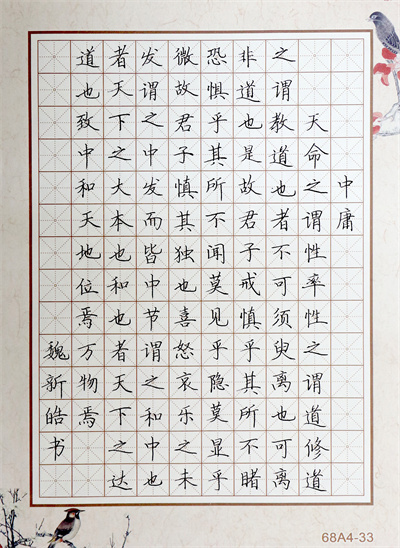 中庸
天命之谓性率性之谓道修道
之谓教道也者不可须臾离也可离
非道也是故君子戒慎乎其所不睹
恐惧乎其所不闻莫见乎隐莫显乎
微故君子慎其独也喜怒哀乐之未
发谓之中发而皆中节谓之和中也
者天下之大本也和也者天下之达
道也致中和天地位焉万物焉
魏新皓书
68A4-33